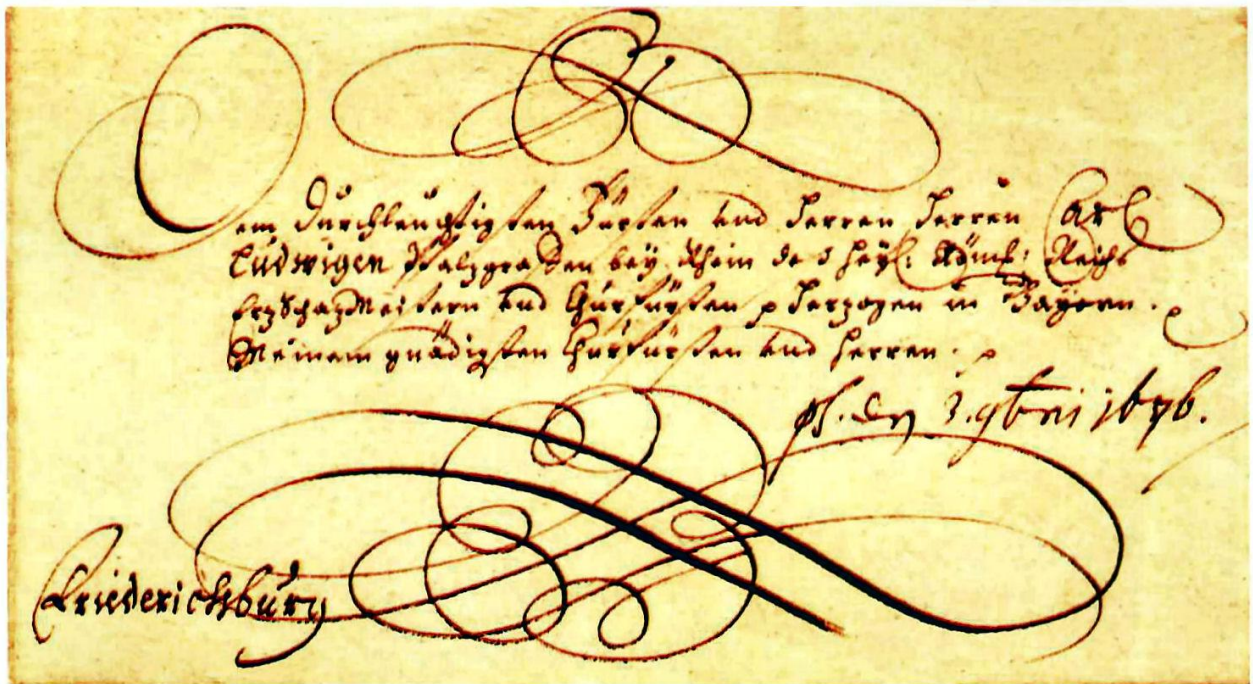 Dem Durchleuchtigsten Fürsten und Herren Herren Carl
Ludwigen Pfalzgraffen bey Rhein deß Heyl: Römis: Reichs
ErzSchazMeistern und Churfürsten p Herzogen in Bayern. p
Meinem gnädigsten Churfürsten und Herren. p
den 3. 9bris 1676.
Friederichsburg